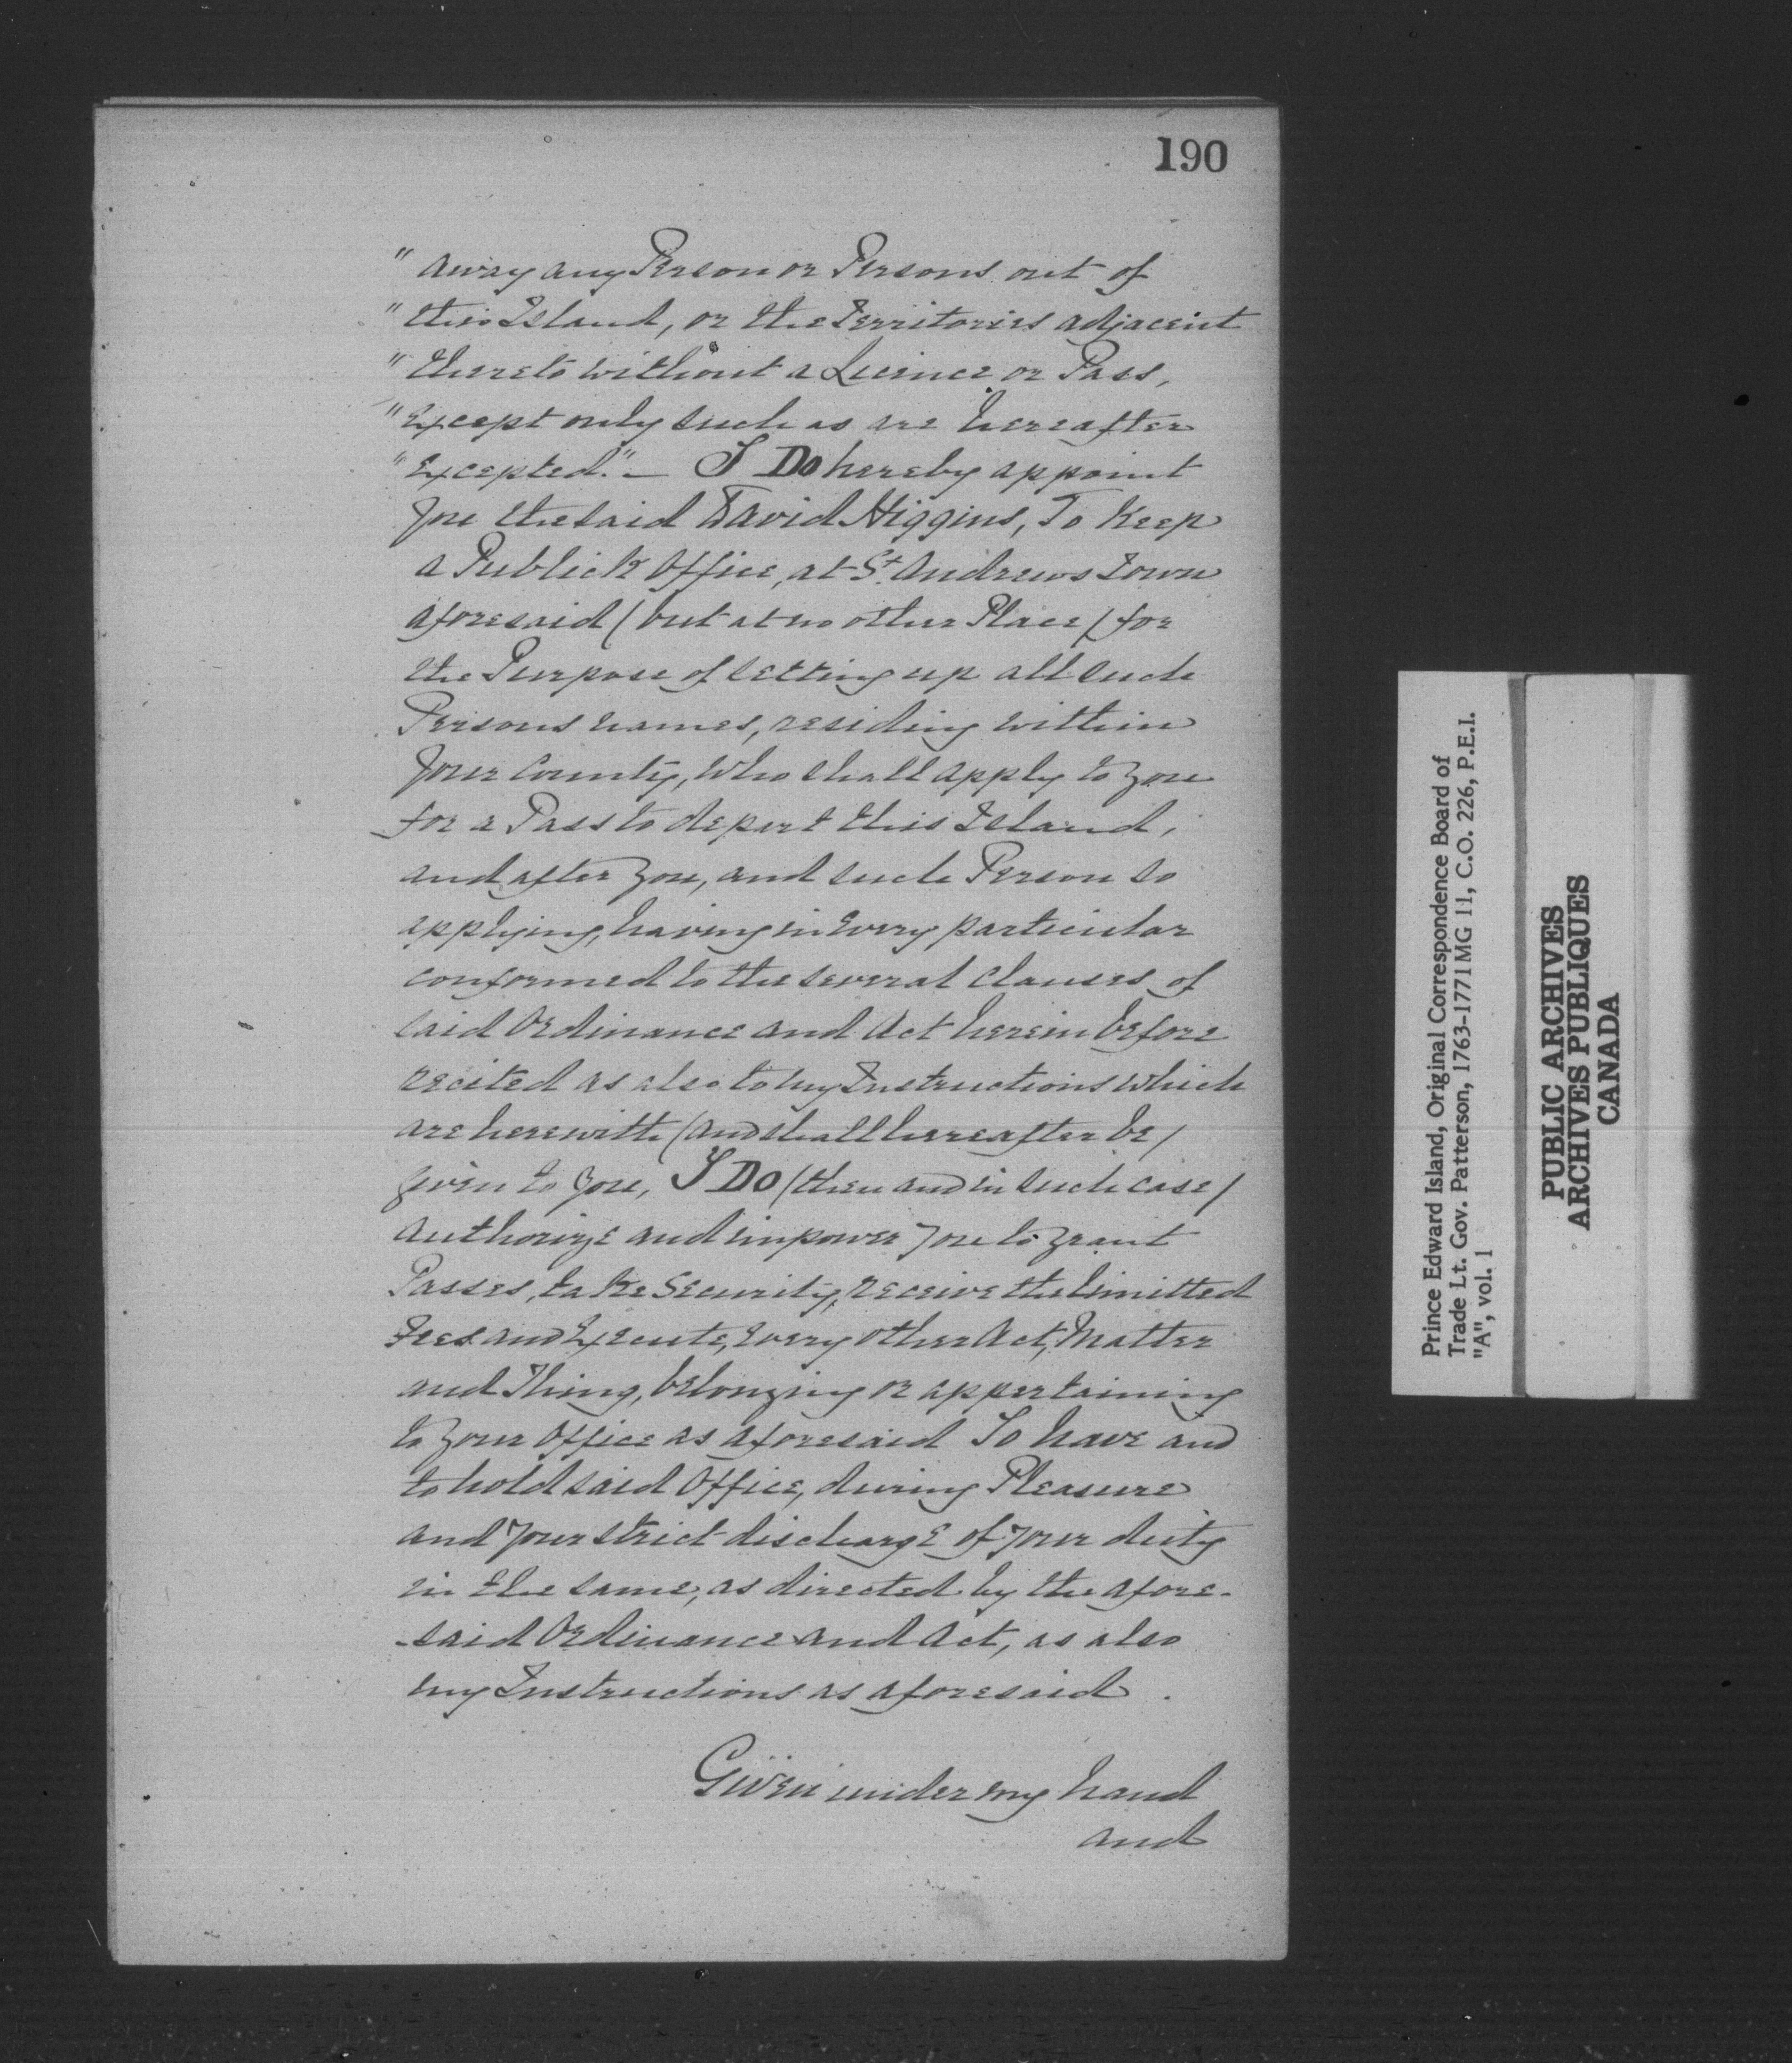 190
" away any Person or Persons out of
" this Island, or the Territories adjacent
" thereto without a Licence or Pass,
" Except only such as are hereafter
" Excepted." — I Do hereby appoint
you the said David Higgins, To Keep
a Publick Office, at St. Andrews Town
aforesaid (but at no other Place) for
the Purpose of setting up all such
Persons names, residing within
your County, who shall apply to you
for a Pass to depart this Island,
and after you, and such Person so
applying, having in Every particular
conformed to the several clauses of
said Ordinance and Act herein before
recited as also to my Instructions which
are herewith (and shall hereafter be)
given to you, I Do (then and in such case)
authorize and impower you to grant
Passes, take Security, receive the limitted
Fees and Execute, Every other Act, Matter
and Thing, belonging or appertaining
to your office as aforesaid To have and
to hold said Office, during Pleasure
and your strict discharge of your duty
in the same, as directed by the afore-
-said Ordinance and Act, as also
my Instructions as aforesaid.
Given under my hand
and
Prince Edward Island, Original Correspondence Board of
Trade Lt. Gov. Patterson, 1763-1771 MG 11, C.O. 226, P.E.I.
"A", vol. 1
PUBLIC ARCHIVES
ARCHIVES PUBLIQUES
CANADA